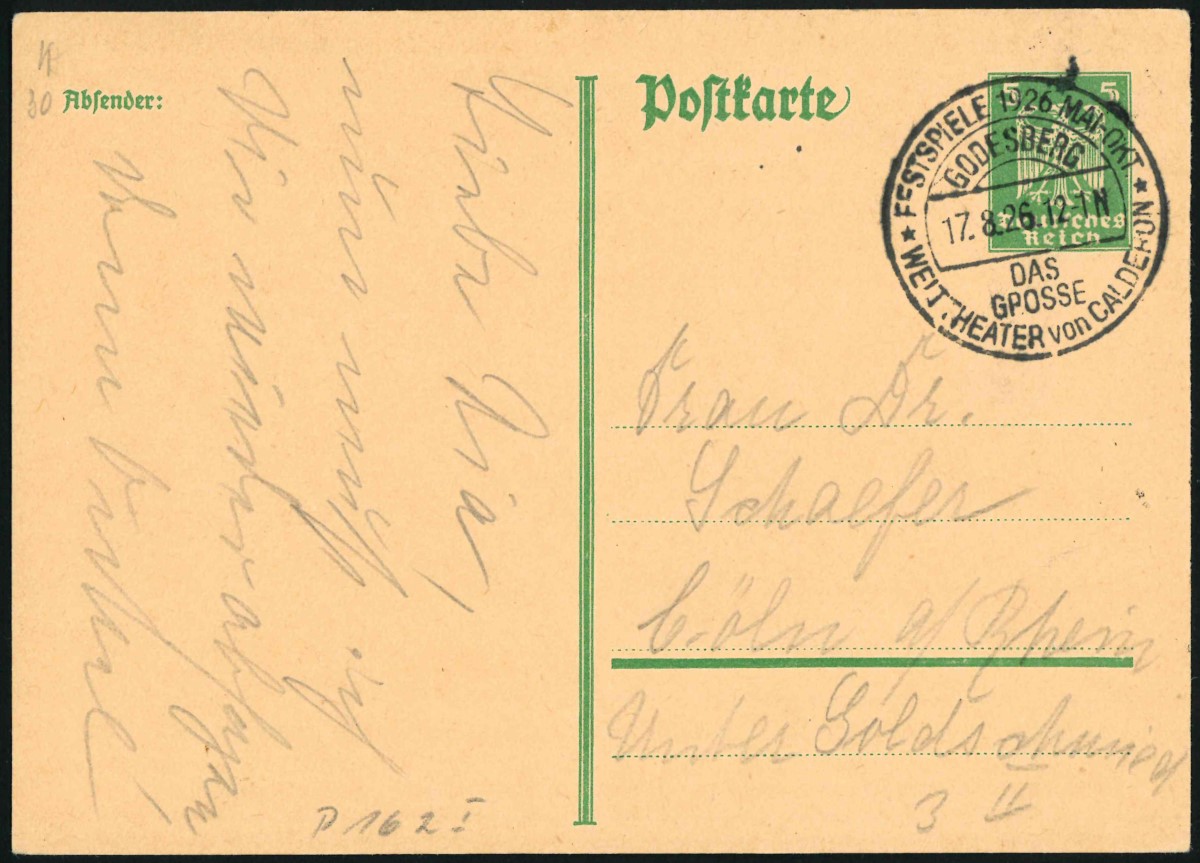 Absender:
30
Liebe Ria,
nun muß ich
Dir wieder absagen
Postkarte
5 5
Deutsches
Reich
★ FESTSPIELE 1926 MAI-OKT ★
GODESBERG
17.8.26.12-1N
DAS
GROSSE
WELTTHEATER von CALDERON
Frau Dr.
Schaefer
Cöln a/Rhein
Unter Goldschmied
3 II
P 162 I